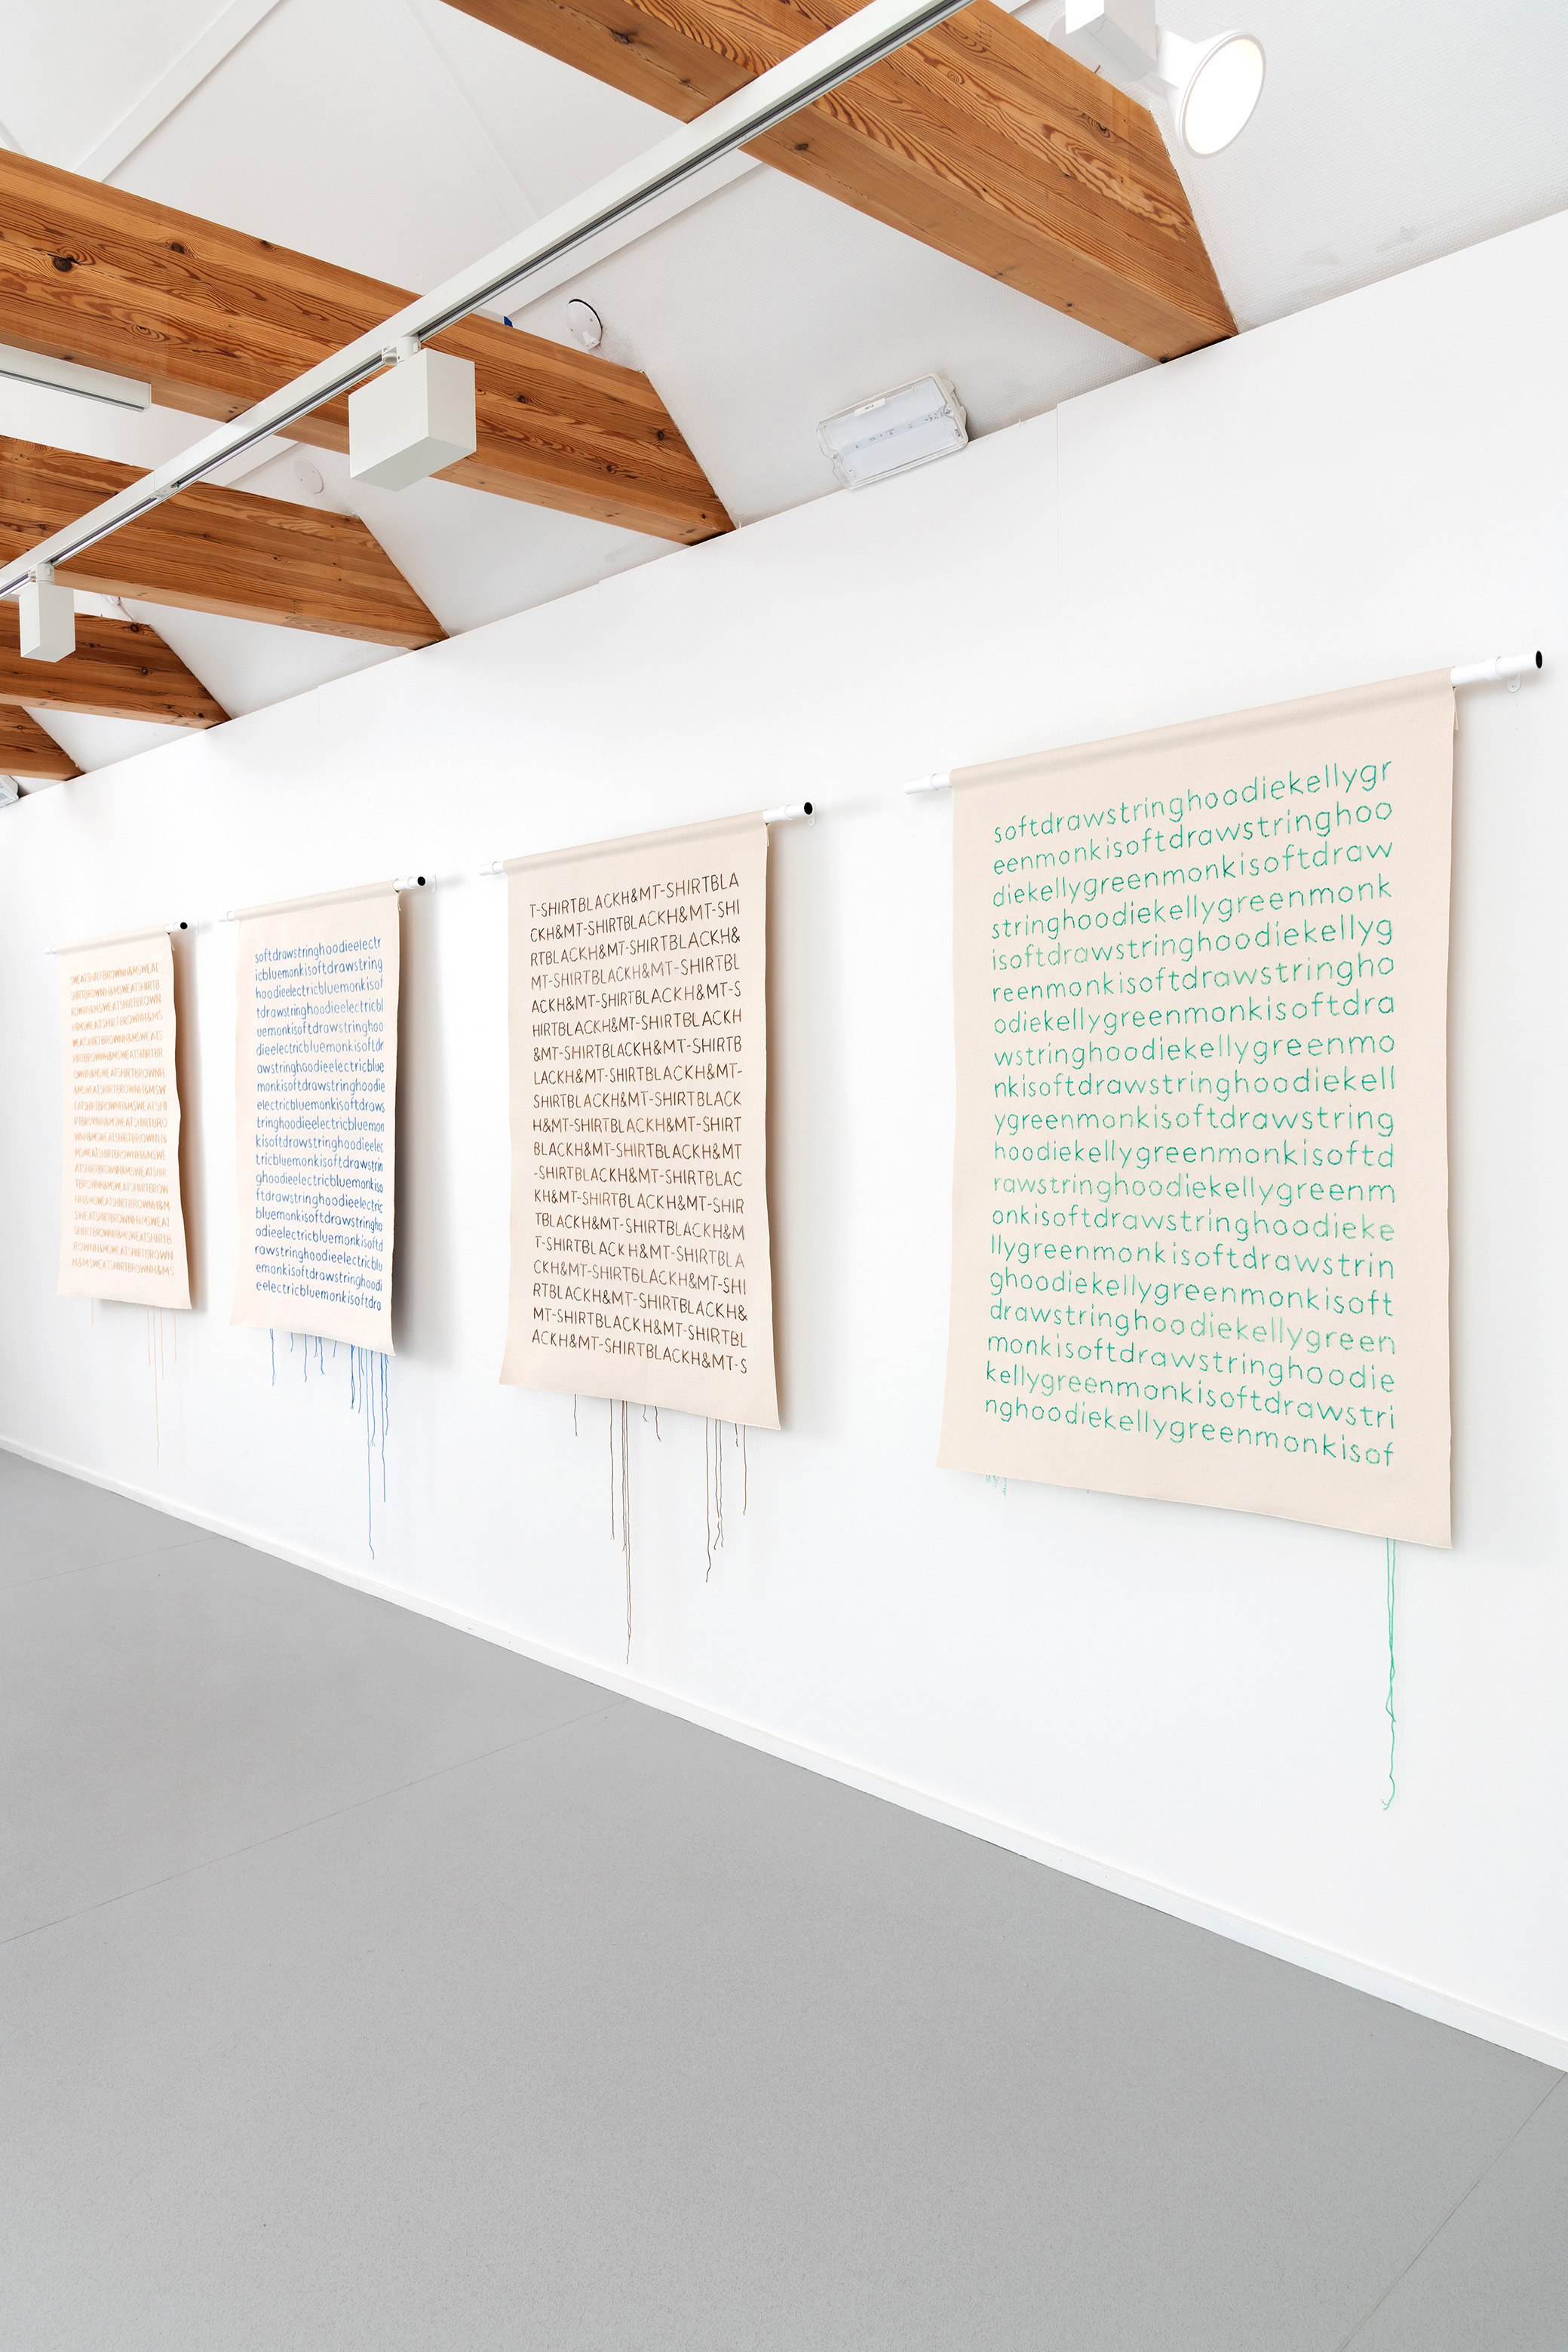 SWEATSHIRTBROWNH&MSWEAT
SHIRTBROWNH&MSWEATSHIRTB
ROWNH&MSWEATSHIRTBROWN
H&MSWEATSHIRTBROWNH&MS
WEATSHIRTBROWNH&MSWEATS
HIRTBROWNH&MSWEATSHIRTBR
OWNH&MSWEATSHIRTBROWNH
&MSWEATSHIRTBROWNH&MSW
EATSHIRTBROWNH&MSWEATSHI
RTBROWNH&MSWEATSHIRTBRO
WNH&MSWEATSHIRTBROWNH&
MSWEATSHIRTBROWNH&MSWE
ATSHIRTBROWNH&MSWEATSHIR
TBROWNH&MSWEATSHIRTBROW
NH&MSWEATSHIRTBROWNH&M
SWEATSHIRTBROWNH&MSWEAT
SHIRTBROWNH&MSWEATSHIRTB
ROWNH&MSWEATSHIRTBROWN
H&MSWEATSHIRTBROWNH&MS
softdrawstringhoodieelectr
icbluemonkisoftdrawstring
hoodieelectricbluemonkisof
tdrawstringhoodieelectricbl
uemonkisoftdrawstringhoo
dieelectricbluemonkisoftdr
awstringhoodieelectricblue
monkisoftdrawstringhoodie
electricbluemonkisoftdraws
tringhoodieelectricbluemon
kisoftdrawstringhoodieelec
tricbluemonkisoftdrawstrin
ghoodieelectricbluemonkiso
ftdrawstringhoodieelectric
bluemonkisoftdrawstringho
odieelectricbluemonkisoftd
rawstringhoodieelectricblu
emonkisoftdrawstringhoodi
eelectricbluemonkisoftdra
T-SHIRTBLACKH&MT-SHIRTBLA
CKH&MT-SHIRTBLACKH&MT-SHI
RTBLACKH&MT-SHIRTBLACKH&
MT-SHIRTBLACKH&MT-SHIRTBL
ACKH&MT-SHIRTBLACKH&MT-S
HIRTBLACKH&MT-SHIRTBLACKH
&MT-SHIRTBLACKH&MT-SHIRTB
LACKH&MT-SHIRTBLACKH&MT-
SHIRTBLACKH&MT-SHIRTBLACK
H&MT-SHIRTBLACKH&MT-SHIRT
BLACKH&MT-SHIRTBLACKH&MT
-SHIRTBLACKH&MT-SHIRTBLAC
KH&MT-SHIRTBLACKH&MT-SHIR
TBLACKH&MT-SHIRTBLACKH&M
T-SHIRTBLACKH&MT-SHIRTBLA
CKH&MT-SHIRTBLACKH&MT-SHI
RTBLACKH&MT-SHIRTBLACKH&
MT-SHIRTBLACKH&MT-SHIRTBL
ACKH&MT-SHIRTBLACKH&MT-S
softdrawstringhoodiekellygr
eenmonkisoftdrawstringhoo
diekellygreenmonkisoftdraw
stringhoodiekellygreenmonk
isoftdrawstringhoodiekellyg
reenmonkisoftdrawstringho
odiekellygreenmonkisoftdra
wstringhoodiekellygreenmo
nkisoftdrawstringhoodiekell
ygreenmonkisoftdrawstring
hoodiekellygreenmonkisoftd
rawstringhoodiekellygreenm
onkisoftdrawstringhoodieke
llygreenmonkisoftdrawstrin
ghoodiekellygreenmonkisoft
drawstringhoodiekellygreen
monkisoftdrawstringhoodie
kellygreenmonkisoftdrawstri
nghoodiekellygreenmonkisof